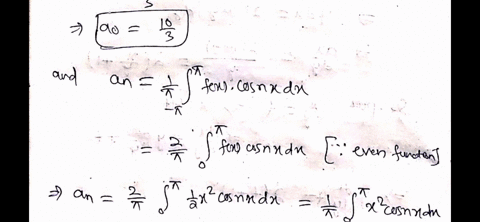 3
⇒ a0 = 10/3
and an = 1/π ∫_{-π}^{π} f(x). cosnx dx
= 2/π ∫_0^π f(x) cosnx dx [∵ even function]
⇒ an = 2/π ∫_0^π 1/2 x² cosnx dx = 1/π ∫_0^π x² cosnx dx